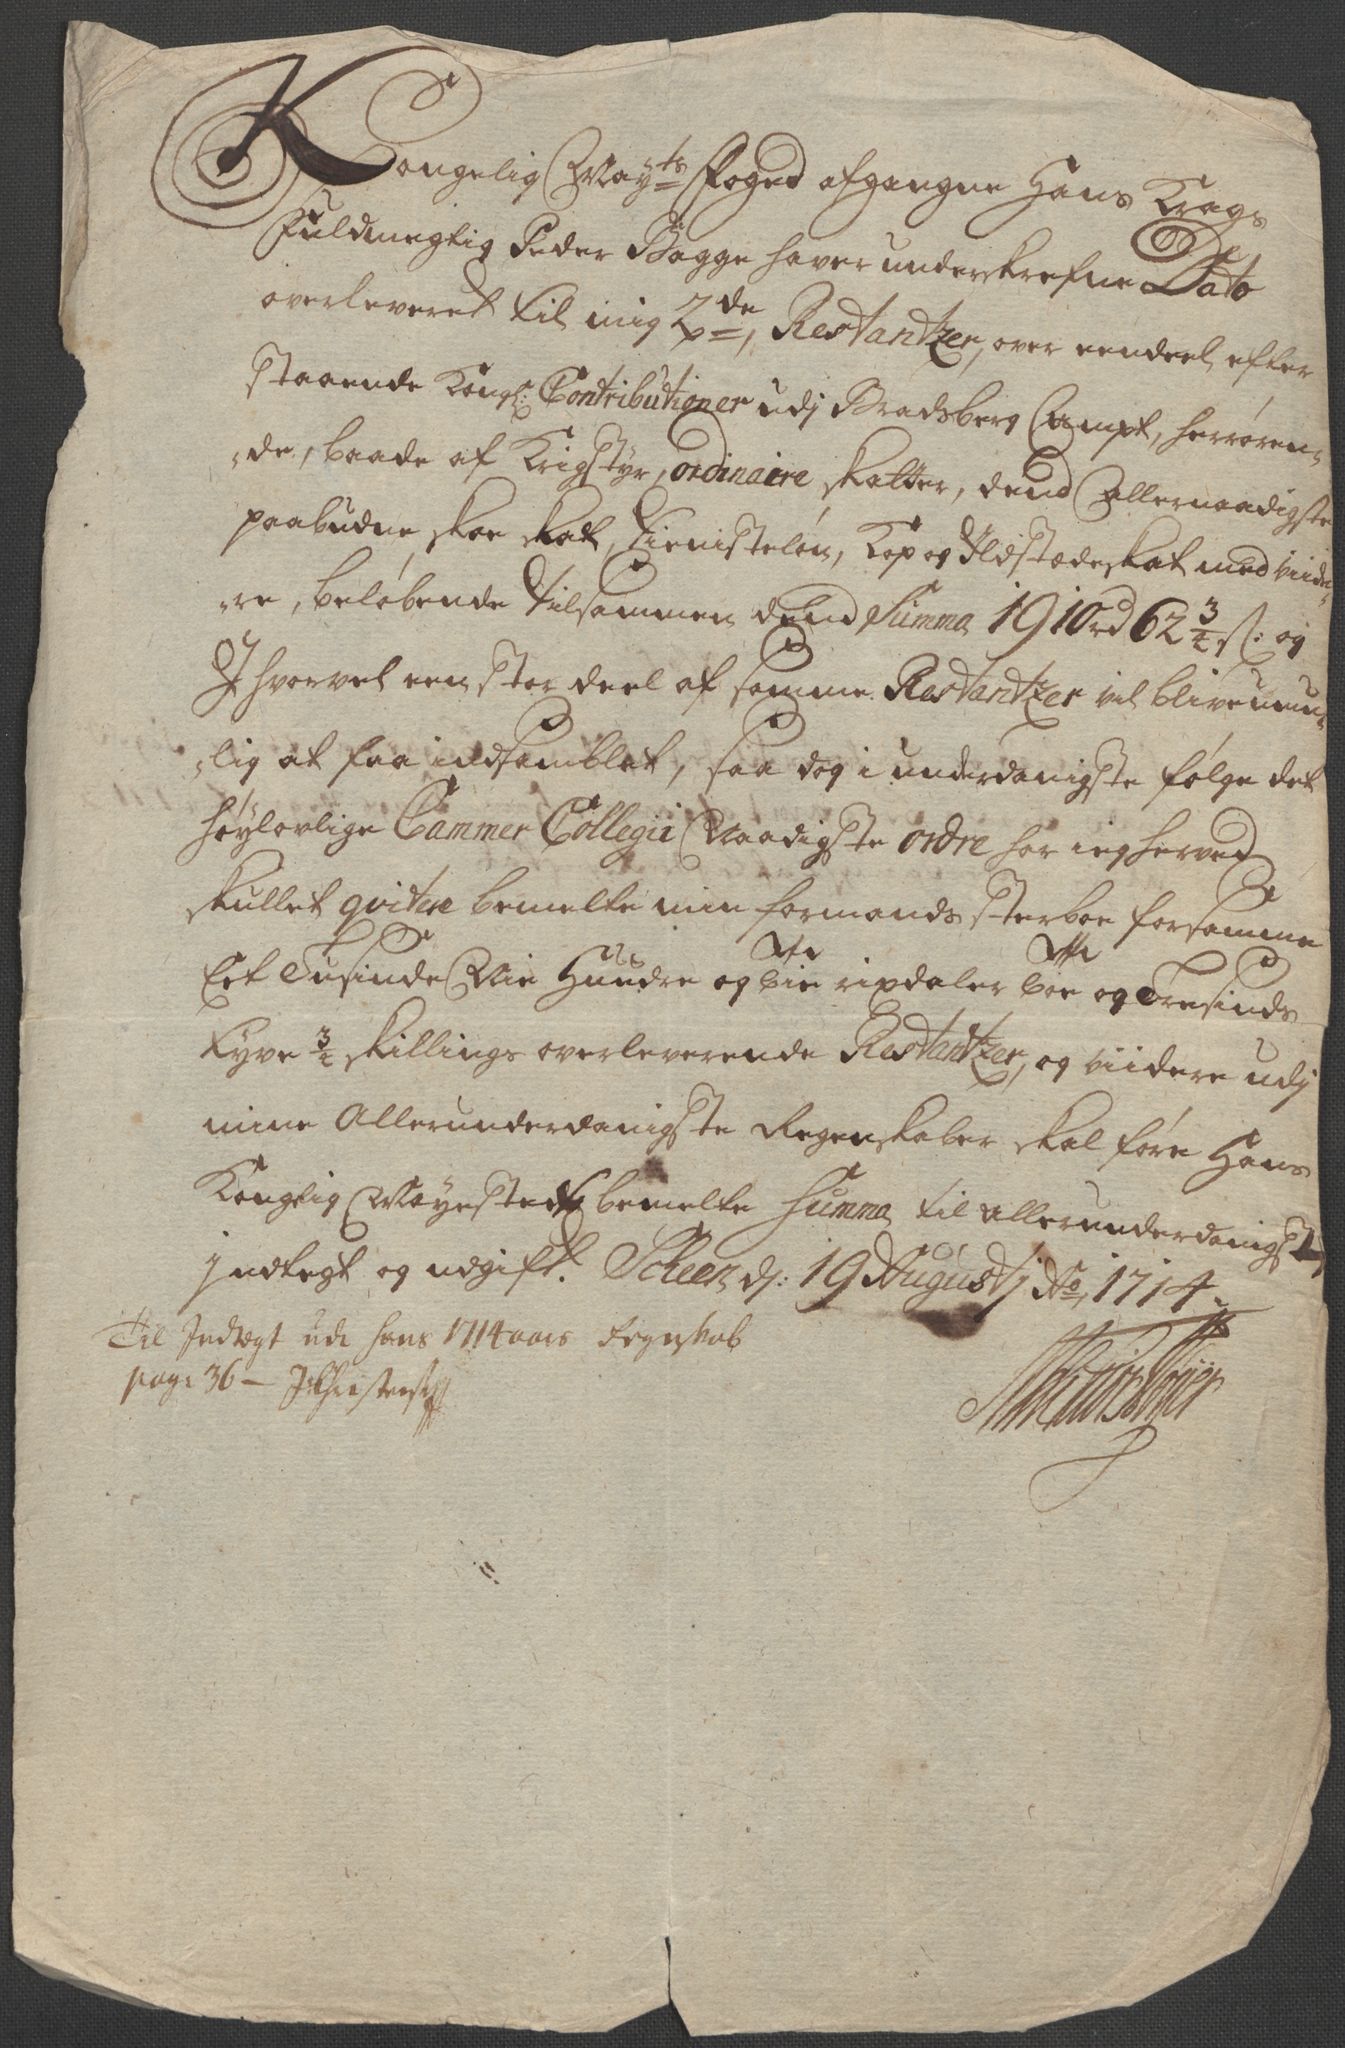 Kongelig May:ts Foged afgangne Hans Krags
Fuldmegtig Peder Bagge haver underskrefne Dato
overleveret til mig 2de, Restantzer, over eendeel efter
staaende Kongl: Contributioner udj Bradsberg Ampt, herrøren-
-de, baade af Krigstyr, ordinaire skatter, dend Allernaadigste
paabudne skoe skat, tienisteløn, Kop og Ildstædeskat med viide-
-re, beløbende tilsammen dend Summa 1910 rd 62 3/4 s: og
J hvorvel een stor deel af samme Restantzer vil blive umu-
-lig at faa indsamblet, saa dog i underdanigste følge det
höylovlige Cammer Collegii Naadigste ordre har ieg herved
skullet qvitere bemelte min formands sterboe for samme
Eet Tusinde Nie Hundre og tie rixdaler toe og Tresinds
tyve 3/4 skillings overleverende Restantzer, og viidere udj
mine Allerunderdanigste Regenskaber skal føre Hans
Konglig Mayestets bemelte Summa til allerunderdanigst
jndtegt og udgift. Scheen d: 19 Augustj Ao 1714.
Til Indtægt udi hans 1714 aars Regnskab
pag: 36 –